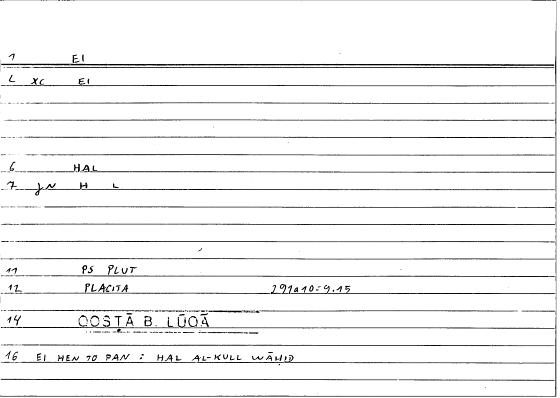 1 EI
L XC EI
6 HAL
7 JN H L
11 PS PLUT
12 PLACITA 291a10:9.15
14 QOSṬĀ B. LŪQĀ
16 EI HEN TO PAN : HAL AL-KULL WĀḤID